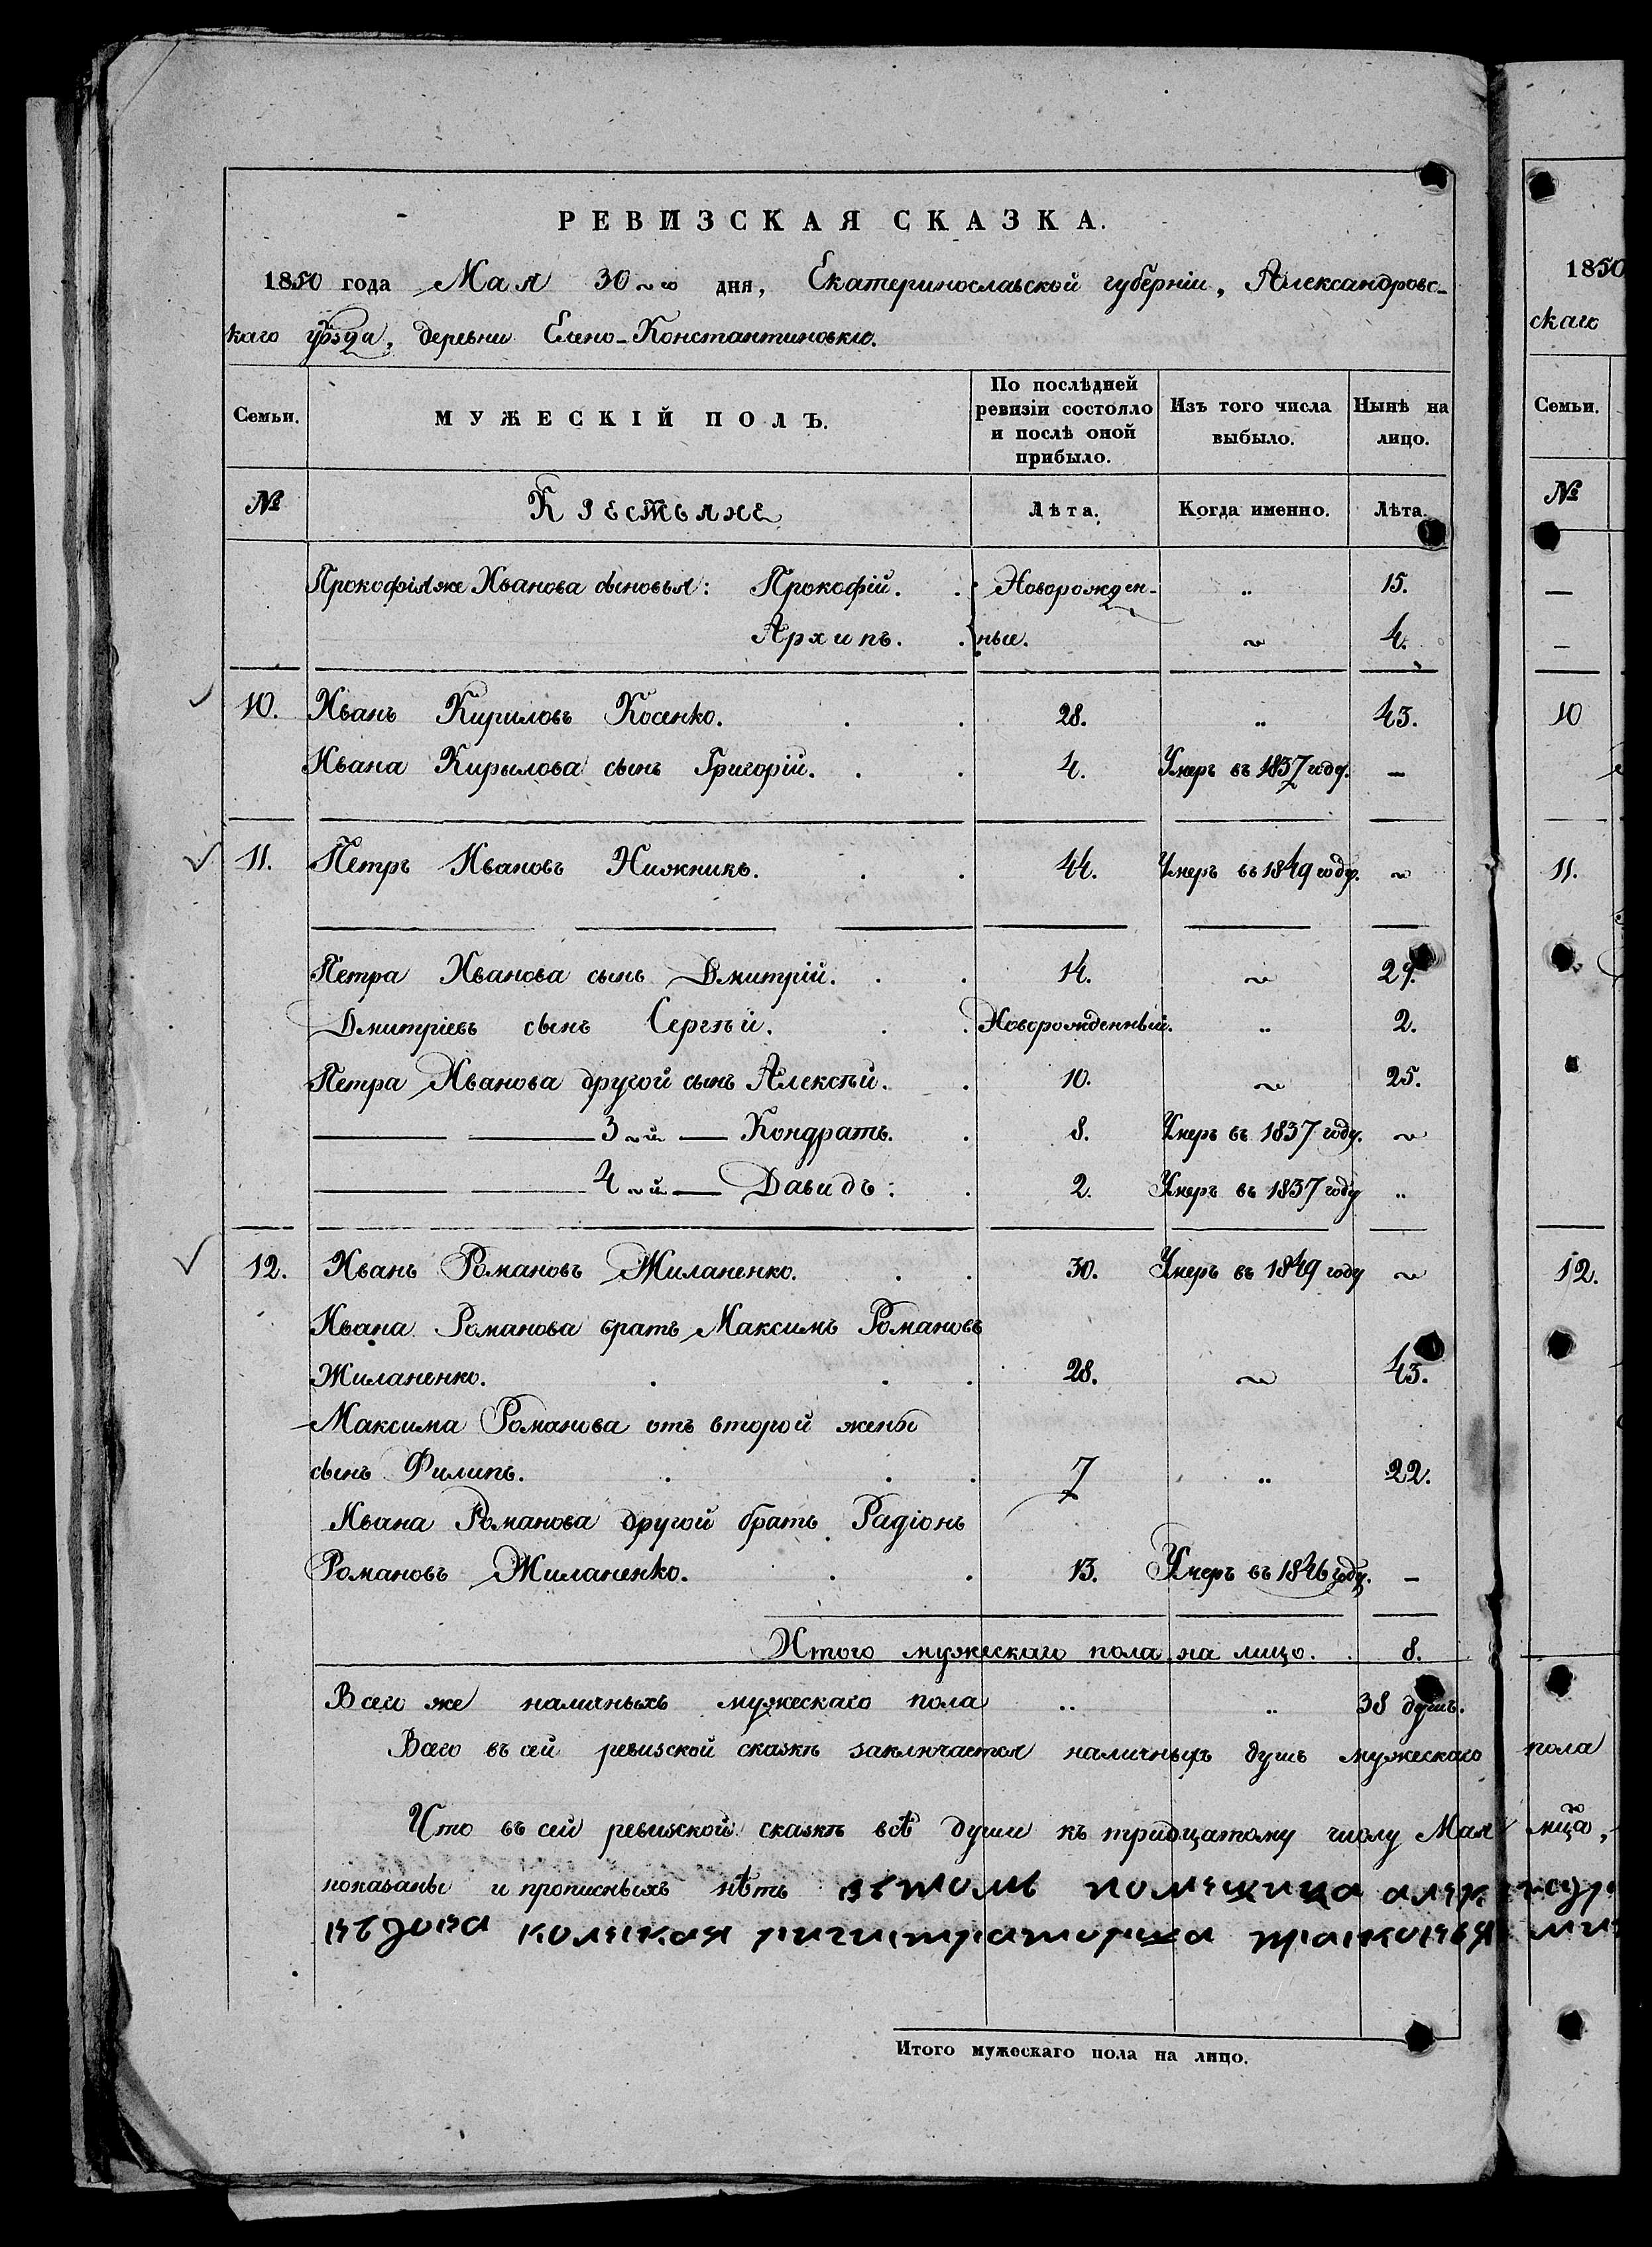 РЕВИЗСКАЯ СКАЗКА.
1850 года Мая 30го дня, Екатеринославской губерніи, Александровс-
каго уѣзда, деревни Елено-Константиновки.
Семьи. МУЖЕСКІЙ ПОЛЪ. По послѣдней ревизіи состояло и послѣ оной прибыло. Изъ того числа выбыло. Нынѣ на лицо.
№ Крестьяне Лѣта. Когда именно. Лѣта.
Прокофія же Иванова сыновья: Прокофій. Новорожден- „ 15.
Архипъ. ные. ~ 4.
10. Иванъ Кириловъ Косенко. 28. „ 43.
Ивана Кирылова сынъ Григорій. 4. Умеръ въ 1837 году. —
11. Петръ Ивановъ Нижникъ. 44. Умеръ въ 1849 году. ~
Петра Иванова сынъ Дмитрій. 14. ~ 29.
Дмитріевъ сынъ Сергѣй. Новорожденный. „ 2.
Петра Иванова другой сынъ Алексѣй. 10. ~ 25.
— — 3й — Кондратъ. 8. Умеръ въ 1837 году. ~
— — 4й — Давидъ: 2. Умеръ въ 1837 году „
12. Иванъ Романовъ Жиланенко. 30. Умеръ въ 1849 году ~
Ивана Романова братъ Максимъ Романовъ
Жиланенко. 28. ~ 43.
Максима Романова отъ второй жены
сынъ Филипъ. 7 „ 22.
Ивана Романова другой братъ Радіонъ
Романовъ Жиланенко. 13. Умеръ въ 1846 году. —
Итого мужескаго пола на лицо. 8.
Всего же наличныхъ мужескаго пола „ „ 38 душъ.
Всего въ сей ревизской сказкѣ заключается наличныхъ душъ мужескаго
Что въ сей ревизской сказкѣ всѣ души къ тридцатому числу Мая
показаны и прописныхъ нѣтъ вътомъ помещица алек
колѣская ригистраторша
Итого мужескаго пола на лицо.
1850
скаго
Семьи.
№
—
—
10
11.
12.
пола